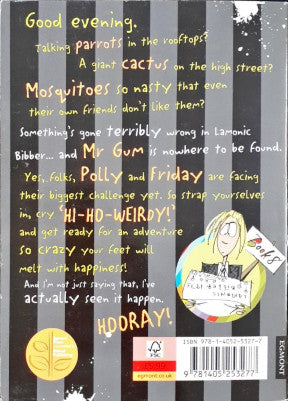 Good evening.
Talking parrots in the rooftops?
A giant cactus on the high street?
Mosquitoes so nasty that even
their own friends don't like them?
Something's gone terribly wrong in Lamonic
Bibber... and Mr Gum is nowhere to be found.
Yes, folks, Polly and Friday are facing
their biggest challenge yet. So strap yourselves
in, cry 'HI-HO-WEIRDY!'
and get ready for an adventure
so crazy your feet will
melt with happiness!
And I'm not just saying that, I've
actually seen it happen.
HOORAY!
Books
FSC
egmont.co.uk
ISBN 978-1-4052-5327-7
9 781405 253277
EGMONT